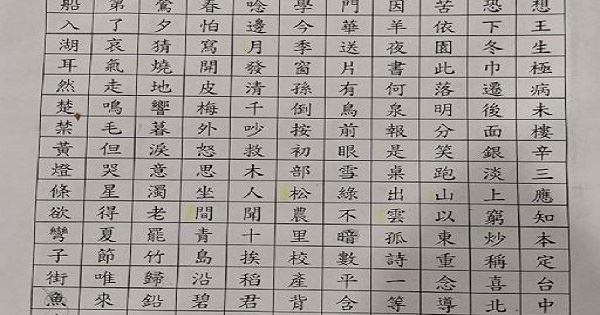 船第鴛春唸學門因苦恐想
入了夕怕邊今羊依下王
湖哀猜寫月季送夜園冬生
耳氣燒開發窗片書此巾極
然走地皮清孫有何落還病
楚鳴響梅千倒鳥泉明後未
禁毛暮外吵按前報分面樓
黃但淚怒救初眼是笑銀辛
燈哭意思木部雪桌跑淡三
條星濁坐人松綠出山上應
欲得老間聞農不雲以窮知
彎夏罷青十里暗孤東炒本
子節竹島挨校數詩重稱定
街唯歸沿稻產平一念喜台
魚來鉛碧君背含等導北中